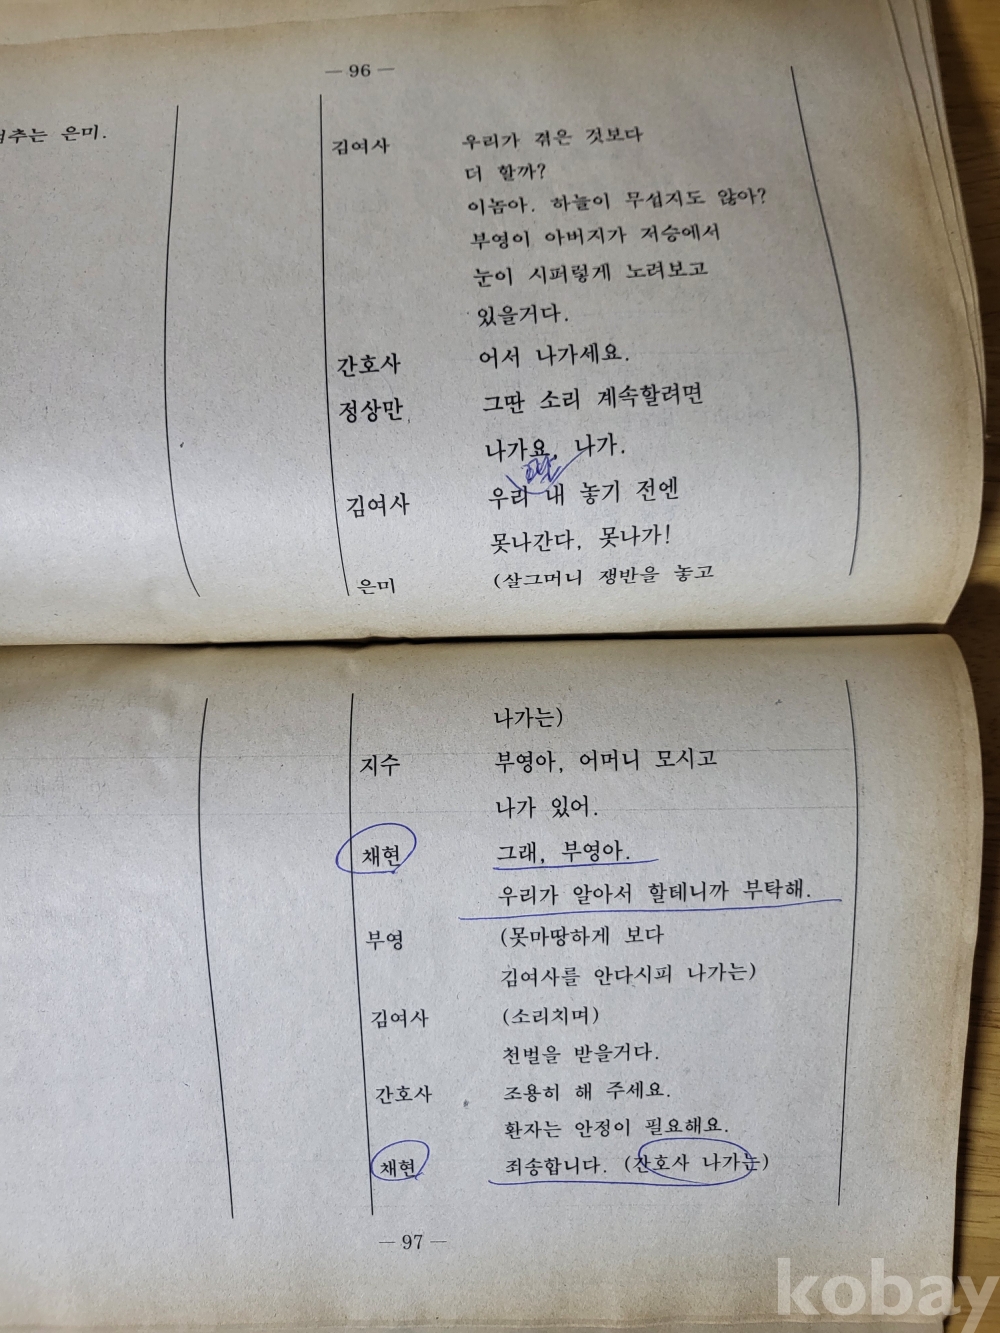 — 96 —
추는 은미.
김여사 우리가 겪은 것보다
더 할까?
이놈아. 하늘이 무섭지도 않아?
부영이 아버지가 저승에서
눈이 시퍼렇게 노려보고
있을거다.
간호사 어서 나가세요.
정상만 그딴 소리 계속할려면
나가요, 나가.
딸
김여사 우리 내 놓기 전엔
못나간다, 못나가!
은미 (살그머니 쟁반을 놓고
나가는)
지수 부영아, 어머니 모시고
나가 있어.
채현 그래, 부영아.
우리가 알아서 할테니까 부탁해.
부영 (못마땅하게 보다
김여사를 안다시피 나가는)
김여사 (소리치며)
천벌을 받을거다.
간호사 조용히 해 주세요.
환자는 안정이 필요해요.
채현 죄송합니다. (간호사 나가는)
— 97 —
kobay